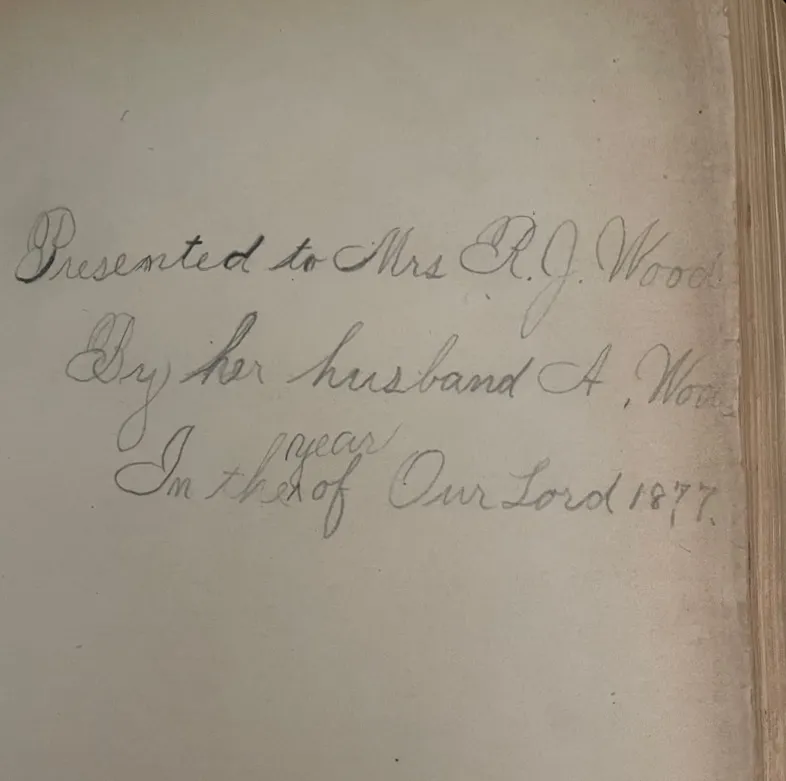 Presented to Mrs R. J. Wood
By her husband A. Wood
year
In the of Our Lord 1877.